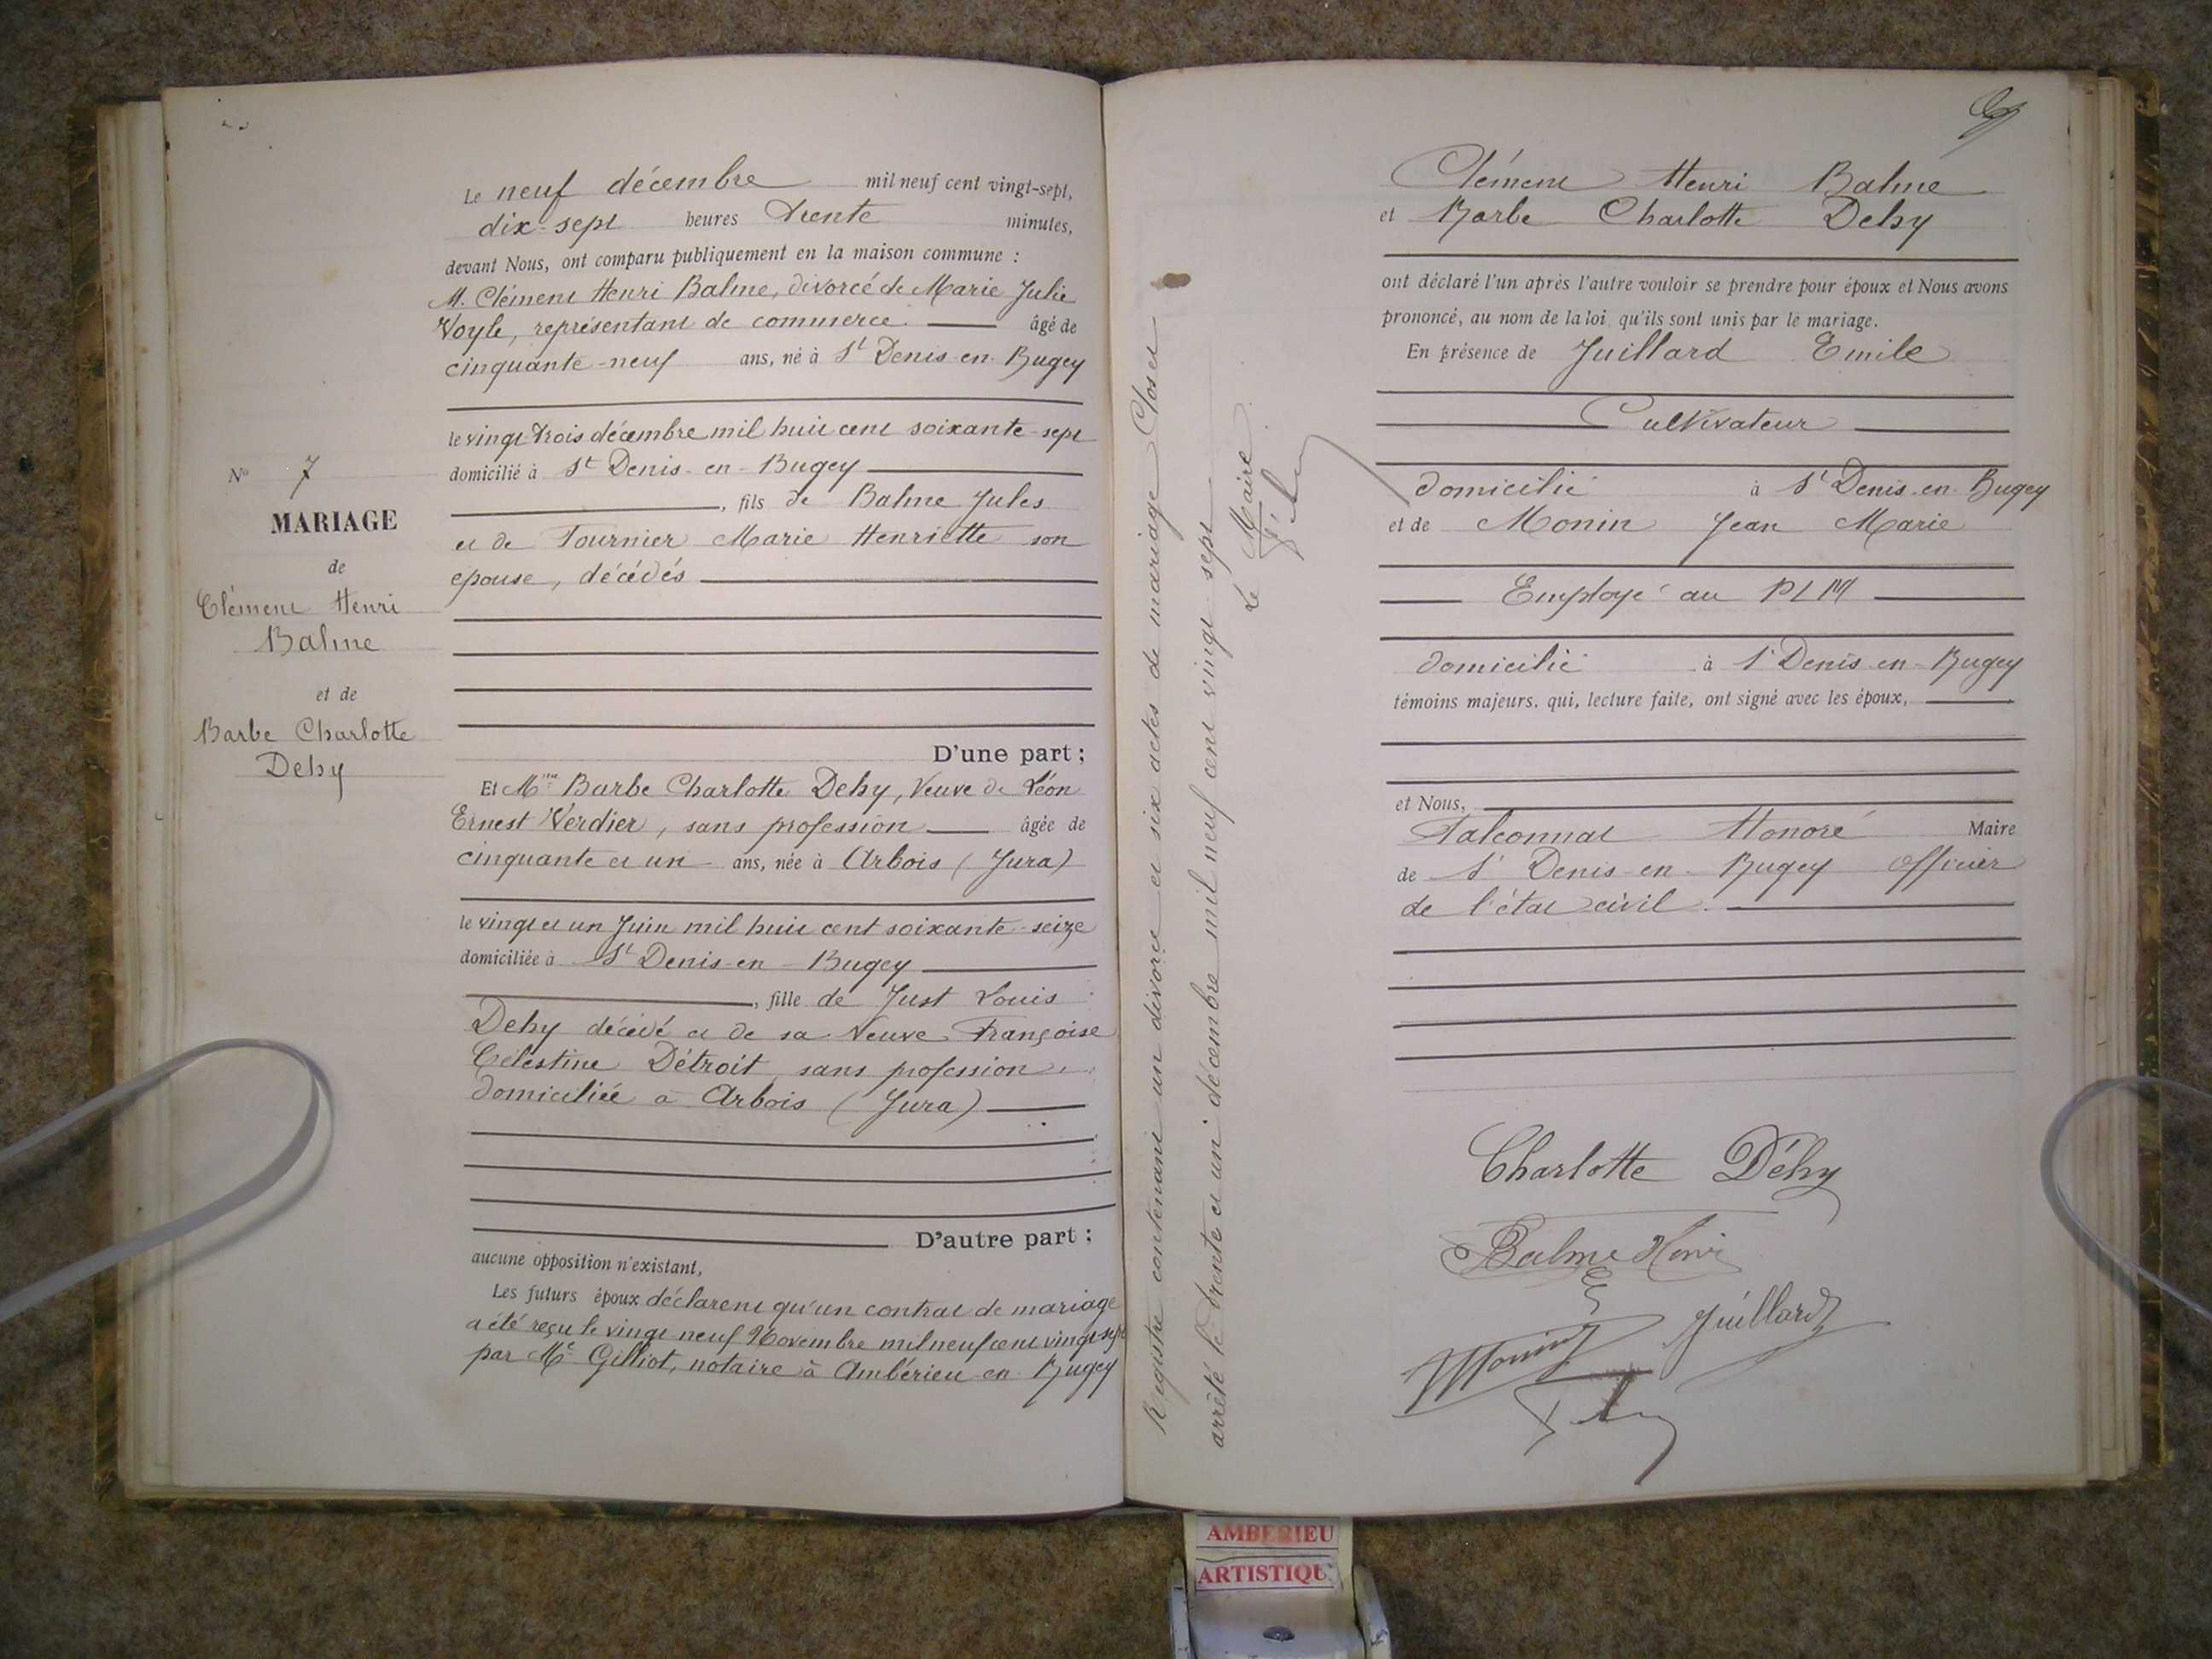 Nº 7
MARIAGE
de
Clément Henri
Balme
et de
Barbe Charlotte
Dehy
Le neuf décembre mil neuf cent vingt-sept,
dix-sept heures trente minutes,
devant Nous, ont comparu publiquement en la maison commune :
M. Clément Henri Balme, divorcé de Marie Julie
Voyle, représentant de commerce âgé de
cinquante-neuf ans, né à St Denis-en-Bugey
le vingt-trois décembre mil huit cent soixante-sept
domicilié à St Denis-en-Bugey
, fils de Balme Jules
et de Tournier Marie Henriette son
épouse, décédés
D'une part ;
Et Mme Barbe Charlotte Dehy, Veuve de Léon
Ernest Verdier, sans profession âgée de
cinquante et un ans, née à Arbois (Jura)
le vingt et un Juin mil huit cent soixante-seize
domiciliée à St Denis-en-Bugey
, fille de Just Louis
Dehy décédé et de sa Veuve Françoise
Célestine Détroit, sans profession
domiciliée à Arbois (Jura)
D'autre part ;
aucune opposition n'existant,
Les futurs époux déclarent qu'un contrat de mariage
a été reçu le vingt neuf Novembre mil neuf cent vingt-sept
par Me Gilliot, notaire à Ambérieu-en-Bugey
Registre contenant un divorce et six actes de mariage Clos et
arrêté le trente et un décembre mil neuf cent vingt sept
Le Maire
Clément Henri Balme
et Barbe Charlotte Dehy
ont déclaré l'un après l'autre vouloir se prendre pour époux et Nous avons
prononcé, au nom de la loi, qu'ils sont unis par le mariage.
En présence de Juillard Emile
Cultivateur
domicilié à St Denis-en-Bugey
et de Monin Jean Marie
Employé au PLM
domicilié à St Denis-en-Bugey
témoins majeurs, qui, lecture faite, ont signé avec les époux,
et Nous,
Falconnat Honoré Maire
de St Denis-en-Bugey Officier
de l'état civil.
Charlotte Déhy
Balme Henri
E Juillard
Monin
AMBERIEU
ARTISTIQU